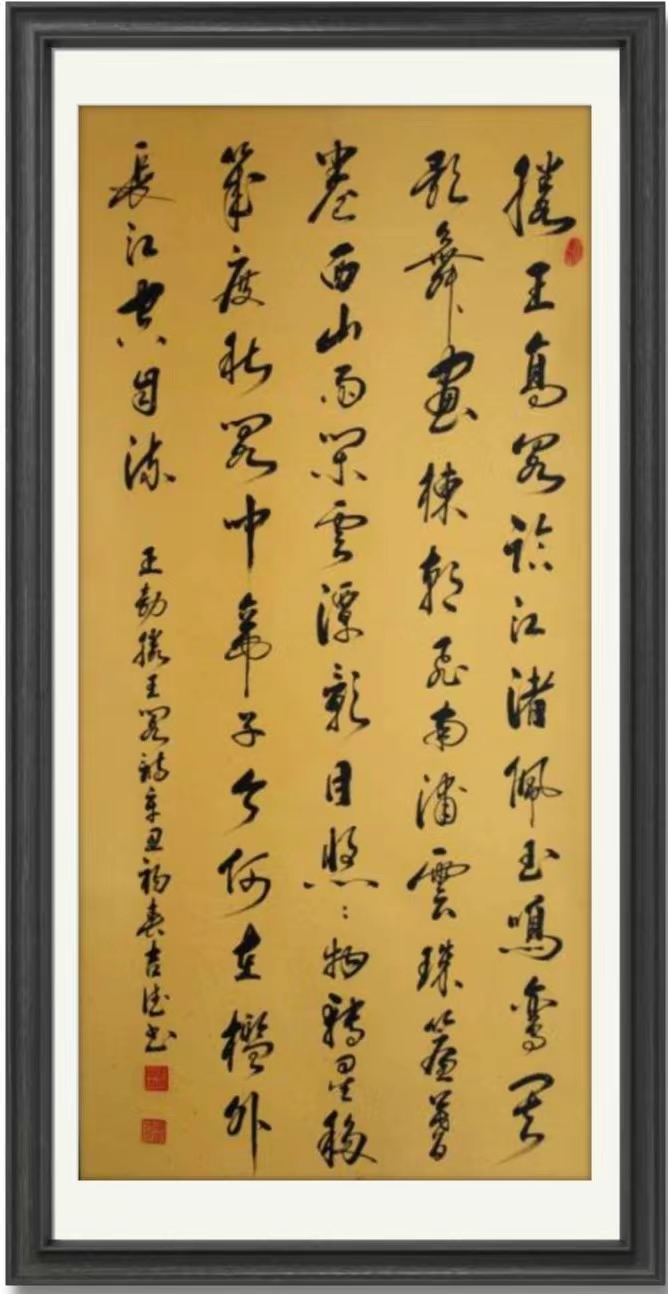 滕王高閣臨江渚佩玉鳴鸞罷
歌舞畫棟朝飛南浦雲珠簾暮
卷西山雨閑云潭影日悠々物換星移
幾度秋閣中帝子今何在檻外
長江空自流
王勃滕王閣詩辛丑初春吉德书